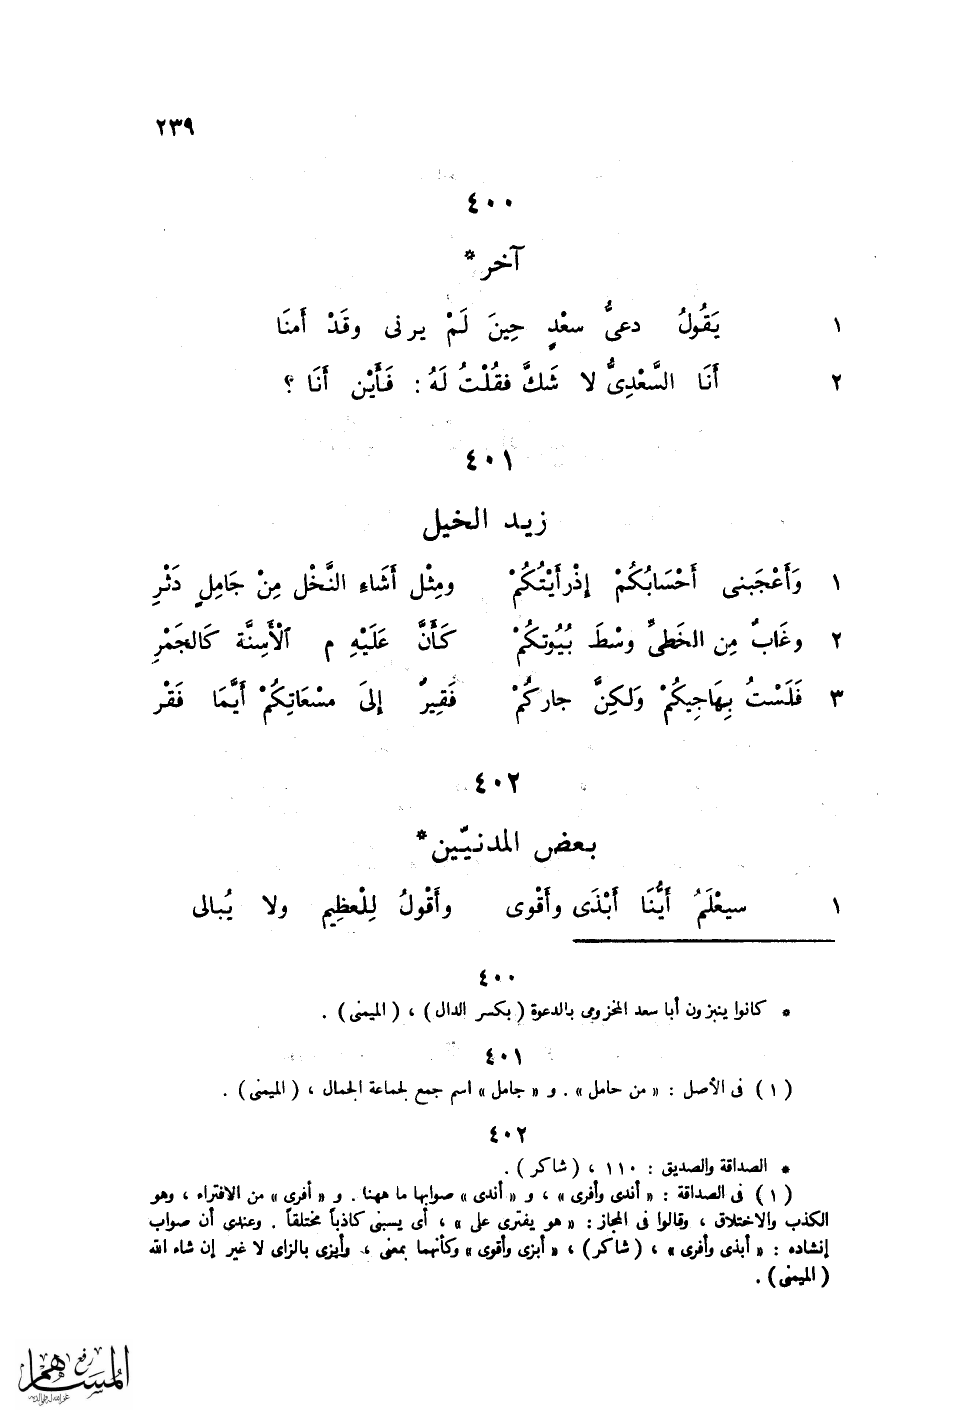 ٢٣٩
٤٠٠
آخر *
١ يَقُولُ دعىُّ سعْدٍ حِينَ لَمْ يرنى وقَدْ أَمنَا
٢ أَنَا السَّعْدِىُّ لا شَكَّ فقُلْتُ لَهُ : فَأَيْن أَنَا ؟
٤٠١
زيد الخيل
١ وَأَعْجَبنى أَحْسَابُكُمْ إِذْرأَيْتُكُمْ ومِثْل أَشَاءِ النَّخْل مِنْ جَامِلٍ دَثْرِ
٢ وغَابٌ مِن الخَطىِّ وسْطَ بُيُوتكُمْ كَأَنَّ عَلَيْهِ م ٱلْأَسِنَّة كَالجَمْرِ
٣ فَلَسْتُ بِهَاجِيكُمْ وَلكِنَّ جاركُمْ فَقِيرٌ إِلىَ مسْعَاتِكُمْ أَيَّمَا فَقْر
٤٠٢
بعض المدنيّين *
١ سيعْلَمُ أَيُّنَا أَبْذَى وأَقْوى وأَقْولُ لِلْعظِيم ولا يُبالى
٤٠٠
* كانوا ينبزون أبا سعد المخزومى بالدعوة ( بكسر الدال ) ، ( الميمنى ) .
٤٠١
( ١ ) فى الأصل : « من حامل » . و « جامل » اسم جمع لجماعة الجمال ، ( الميمنى ) .
٤٠٢
* الصداقة والصديق : ١١٠ ، ( شاكر ) .
( ١ ) فى الصداقة : « أندى وأفرى » ، و « أندى » صوابها ما ههنا . و « أفرى » من الافتراء ، وهو
الكذب والاختلاق ، وقالوا فى المجاز : « هو يفترى على » ، أى يسبنى كاذباً مختلقاً . وعندى أن صواب
إنشاده : « أبذى وأفرى » ، ( شاكر ) ، « أبزى وأقوى » وكأنهما بمعنى ، وأبزى بالزاى لا غير إن شاء الله
( الميمنى ) .
المساهم
رفع